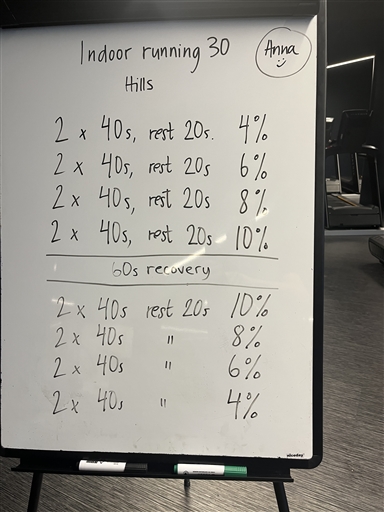 Indoor running 30
Anna
Hills
2 x 40s, rest 20s. 4%
2 x 40s, rest 20s 6%
2 x 40s, rest 20s 8%
2 x 40s, rest 20s 10%
60s recovery
2 x 40s rest 20s 10%
2 x 40s " 8%
2 x 40s " 6%
2 x 40s " 4%